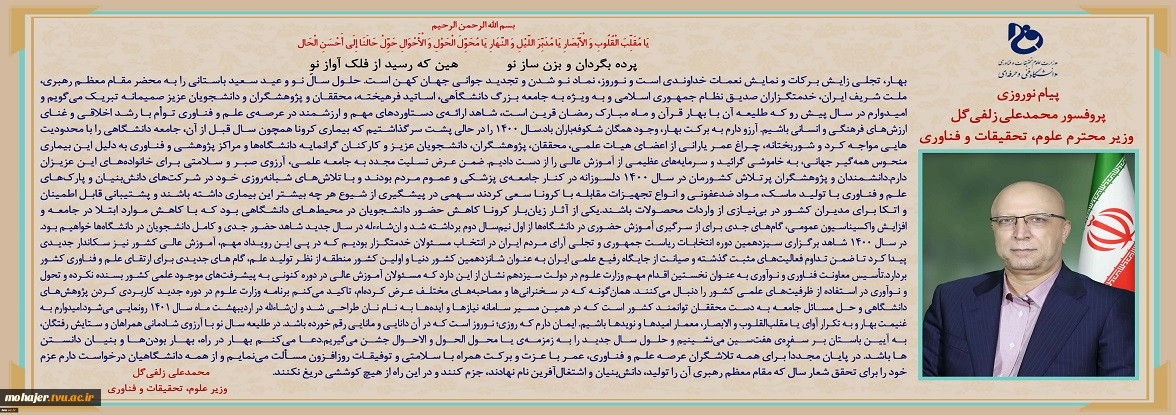 بسم الله الرحمن الرحیم
یَا مُقَلِّبَ الْقُلُوبِ وَ الْأَبْصَارِ یَا مُدَبِّرَ اللَّیْلِ وَ النَّهَارِ یَا مُحَوِّلَ الْحَوْلِ وَ الْأَحْوَالِ حَوِّلْ حَالَنَا إِلَى أَحْسَنِ الْحَالِ
پرده بگردان و بزن ساز نو هین که رسید از فلک آواز نو
وزارت علوم تحقیقات و فناوری
دانشگاه فنی و حرفه‌ای
پیام نوروزی
پروفسور محمدعلی زلفی‌گل
وزیر محترم علوم، تحقیقات و فناوری
بهار، تجلی زایش برکات و نمایش نعمات خداوندی است و نوروز، نماد نو شدن و تجدید جوانی جهان کهن است. حلول سال نو و عید سعید باستانی را به محضر مقام معظم رهبری،
ملت شریف ایران، خدمتگزاران صدیق نظام جمهوری اسلامی و به ویژه به جامعه بزرگ دانشگاهی، اساتید فرهیخته، محققان و پژوهشگران و دانشجویان عزیز صمیمانه تبریک می‌گویم و
امیدوارم در سال پیش رو که طلیعه آن با بهار قرآن و ماه مبارک رمضان قرین است، شاهد ارائه‌ی دستاوردهای مهم و ارزشمند در عرصه‌ی علم و فناوری توأم با رشد اخلاقی و غنای
ارزش‌های فرهنگی و انسانی باشیم. آرزو دارم به برکت بهار، وجود همگان شکوفه‌باران باد.سال ۱۴۰۰ را در حالی پشت سر گذاشتیم که بیماری کرونا همچون سال قبل از آن، جامعه دانشگاهی را با محدودیت
هایی مواجه کرد و شوربختانه، چراغ عمر یارانی از اعضای هیات علمی، محققان، پژوهشگران، دانشجویان عزیز و کارکنان گرانمایه دانشگاه‌ها و مراکز پژوهشی و فناوری به دلیل این بیماری
منحوس همه‌گیر جهانی، به خاموشی گرائید و سرمایه‌های عظیمی از آموزش عالی را از دست دادیم. ضمن عرض تسلیت مجدد به جامعه علمی، آرزوی صبر و سلامتی برای خانواده‌های این عزیزان
دارم.دانشمندان و پژوهشگران پرتلاش کشورمان در سال ۱۴۰۰ دلسوزانه در کنار جامعه‌ی پزشکی و عموم مردم بودند و با تلاش‌های شبانه‌روزی خود در شرکت‌های دانش‌بنیان و پارک‌های
علم و فناوری با تولید ماسک، مواد ضدعفونی و انواع تجهیزات مقابله با کرونا سعی کردند سهمی در پیشگیری از شیوع هر چه بیشتر این بیماری داشته باشند و پشتیبانی قابل اطمینان
و اتکا برای مدیران کشور در بی‌نیازی از واردات محصولات باشند.یکی از آثار زیان‌بار کرونا کاهش حضور دانشجویان در محیط‌های دانشگاهی بود که با کاهش موارد ابتلا در جامعه و
افزایش واکسیناسیون عمومی، گام‌های جدی برای از سرگیری آموزش حضوری در دانشگاه‌ها از اول نیم‌سال دوم برداشته شد و ان‌شاءالله در سال جدید شاهد حضور جدی و کامل دانشجویان در دانشگاه‌ها خواهیم بود.
در سال ۱۴۰۰ شاهد برگزاری سیزدهمین دوره انتخابات ریاست جمهوری و تجلی آرای مردم ایران در انتخاب مسئولان خدمتگزار بودیم که در پی این رویداد مهم، آموزش عالی کشور نیز سکاندار جدیدی
پیدا کرد تا ضمن تداوم فعالیت‌های مثبت گذشته و صیانت از جایگاه رفیع علمی ایران به عنوان شانزدهمین کشور دنیا و اولین کشور منطقه از نظر تولید علم، گام های جدیدی برای ارتقای علم و فناوری کشور
بردارد.تأسیس معاونت فناوری و نوآوری به عنوان نخستین اقدام مهم وزارت علوم در دولت سیزدهم نشان از این دارد که مسئولان آموزش عالی در دوره کنونی به پیشرفت‌های موجود علمی کشور بسنده نکرده و تحول
و نوآوری در استفاده از ظرفیت‌های علمی کشور را دنبال می‌کنند. همان‌گونه که در سخنرانی‌ها و مصاحبه‌های مختلف عرض کرده‌ام، تاکید می‌کنم برنامه وزارت علوم در دوره جدید کاربردی کردن پژوهش‌های
دانشگاهی و حل مسائل جامعه به دست محققان توانمند کشور است که در همین مسیر سامانه نیازها و ایده‌ها به نام نان طراحی شد و ان‌شاءالله در اردیبهشت ماه سال ۱۴۰۱ رونمایی می‌شود.امیدوارم به
غنیمت بهار و به تکرار آوای یا مقلب‌القلوب و الابصار، معمار امیدها و نویدها باشیم. ایمان دارم که روزی؛ نوروز است که در آن دانایی و مانایی رقم خورده باشد. در طلیعه سال نو با آرزوی شادمانی همراهان و ستایش رفتگان،
به آیین باستان بر سفره‌ی هفت‌سین می‌نشینیم و حلول سال جدید را به زمزمه‌ی یا محول الحول و الاحوال جشن می‌گیریم.دعا می‌کنم بهار در راه، بهار بودن‌ها و بنیان دانستن
ها باشد. در پایان مجدداً برای همه تلاشگران عرصه علم و فناوری، عمر با عزت و برکت همراه با سلامتی و توفیقات روزافزون مسألت می‌نمایم و از همه دانشگاهیان درخواست دارم عزم
خود را برای تحقق شعار سال که مقام معظم رهبری آن را تولید، دانش‌بنیان و اشتغال‌آفرین نام نهادند، جزم کنند و در این راه از هیچ کوششی دریغ نکنند.
محمدعلی زلفی‌گل
وزیر علوم، تحقیقات و فناوری
mohajer.tvu.ac.ir